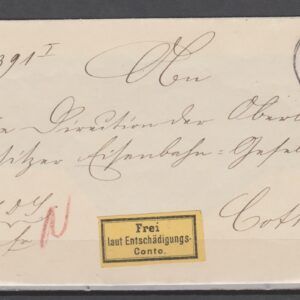 391 I
An
Direction der Ober
sitzer Eisenbahn-Gesel
Cott
Frei
laut Entschädigungs-
Conto.